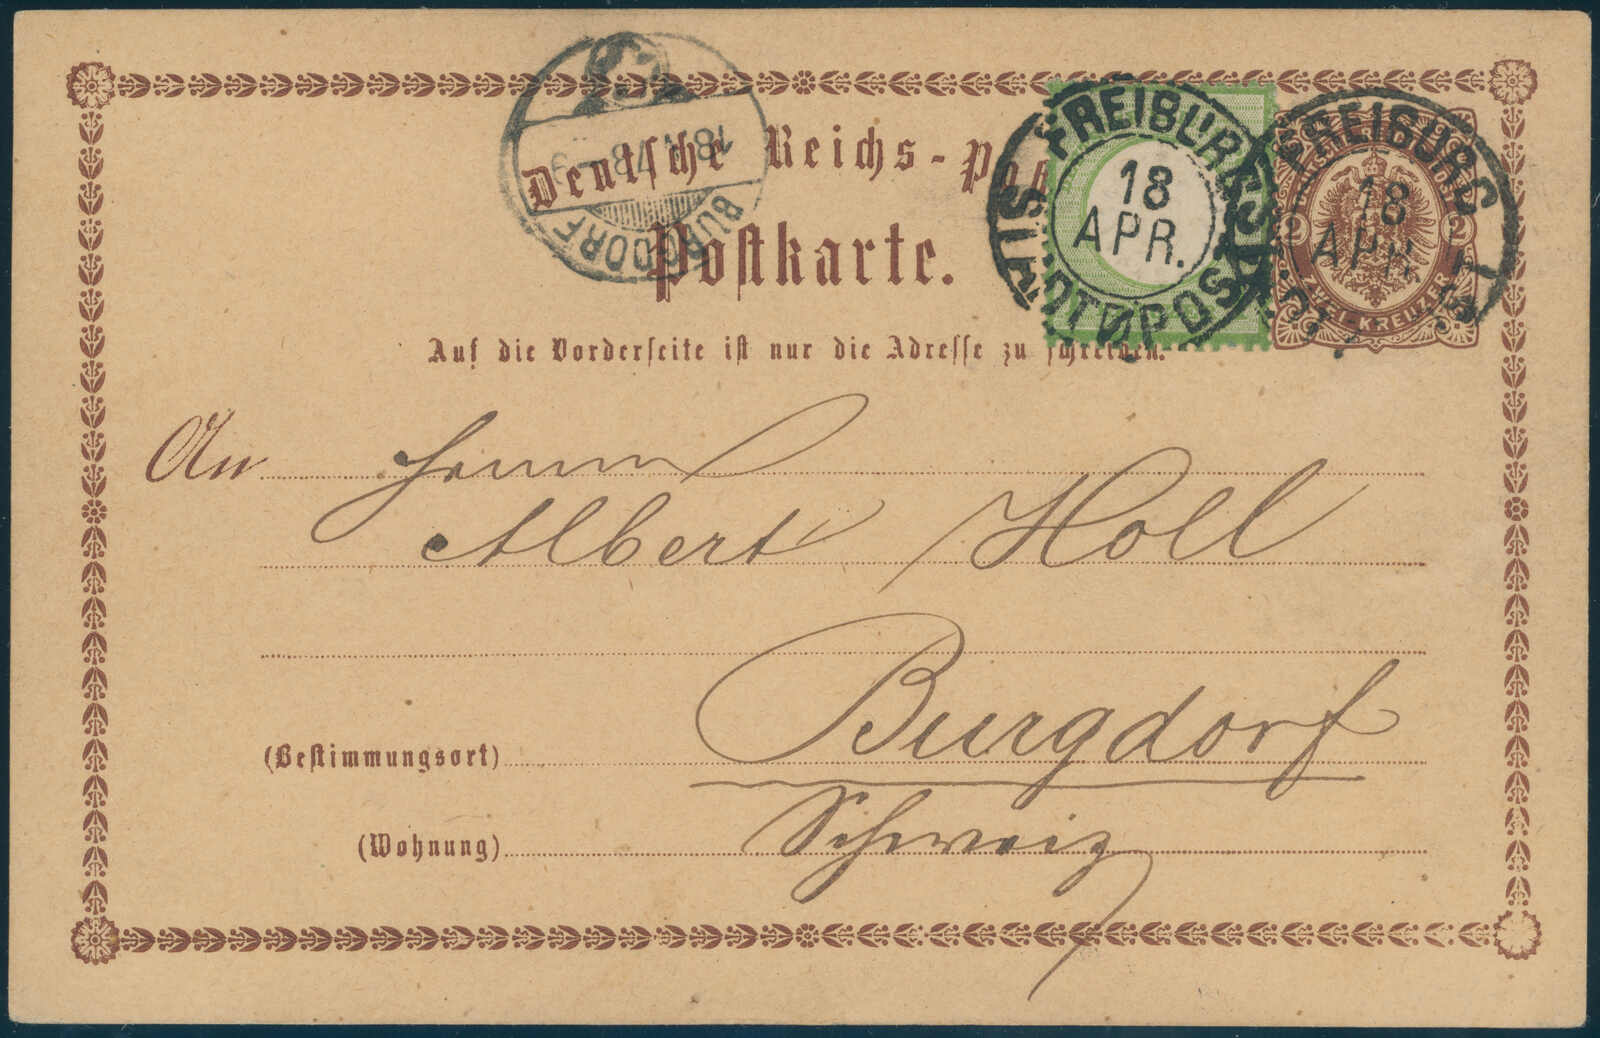 Deutsche Reichs-Post
Postkarte.
Auf die Vorderseite ist nur die Adresse zu schreiben.
FREIBURG
18
APR.
STADTPOST
FREIBURG
18
APR.
2 2
ZWEI-KREUZER
BURGDORF
An Herrn
Albert Holl
(Bestimmungsort) Burgdorf
(Wohnung) Schweiz